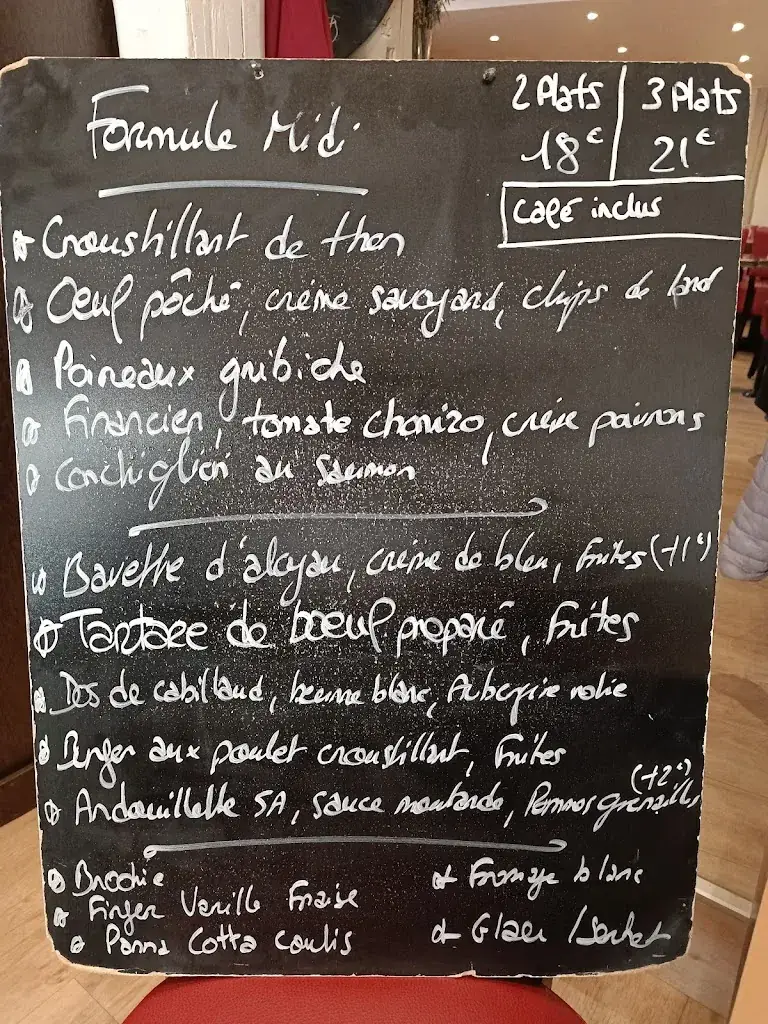 Formule Midi
2 Plats | 3 Plats
18€ | 21€
café inclus
Croustillant de thon
Oeuf pôché, crème savoyard, chips de lard
Poireaux gribiche
Financier, tomate chorizo, crème poivrons
Conchiglioni au Saumon
Bavette d'aloyau, crème de bleu, Frites (+1€)
Tartare de boeuf préparé, Frites
Dos de cabillaud, beurre blanc, Aubergine
Burger aux poulet croustillant, Frites
(+2€)
Andouillette 5A, sauce moutarde, Pommes grenailles
Brookie
Finger Vanille Fraise
Panna Cotta coulis
Fromage blanc
Glace / Sorbet